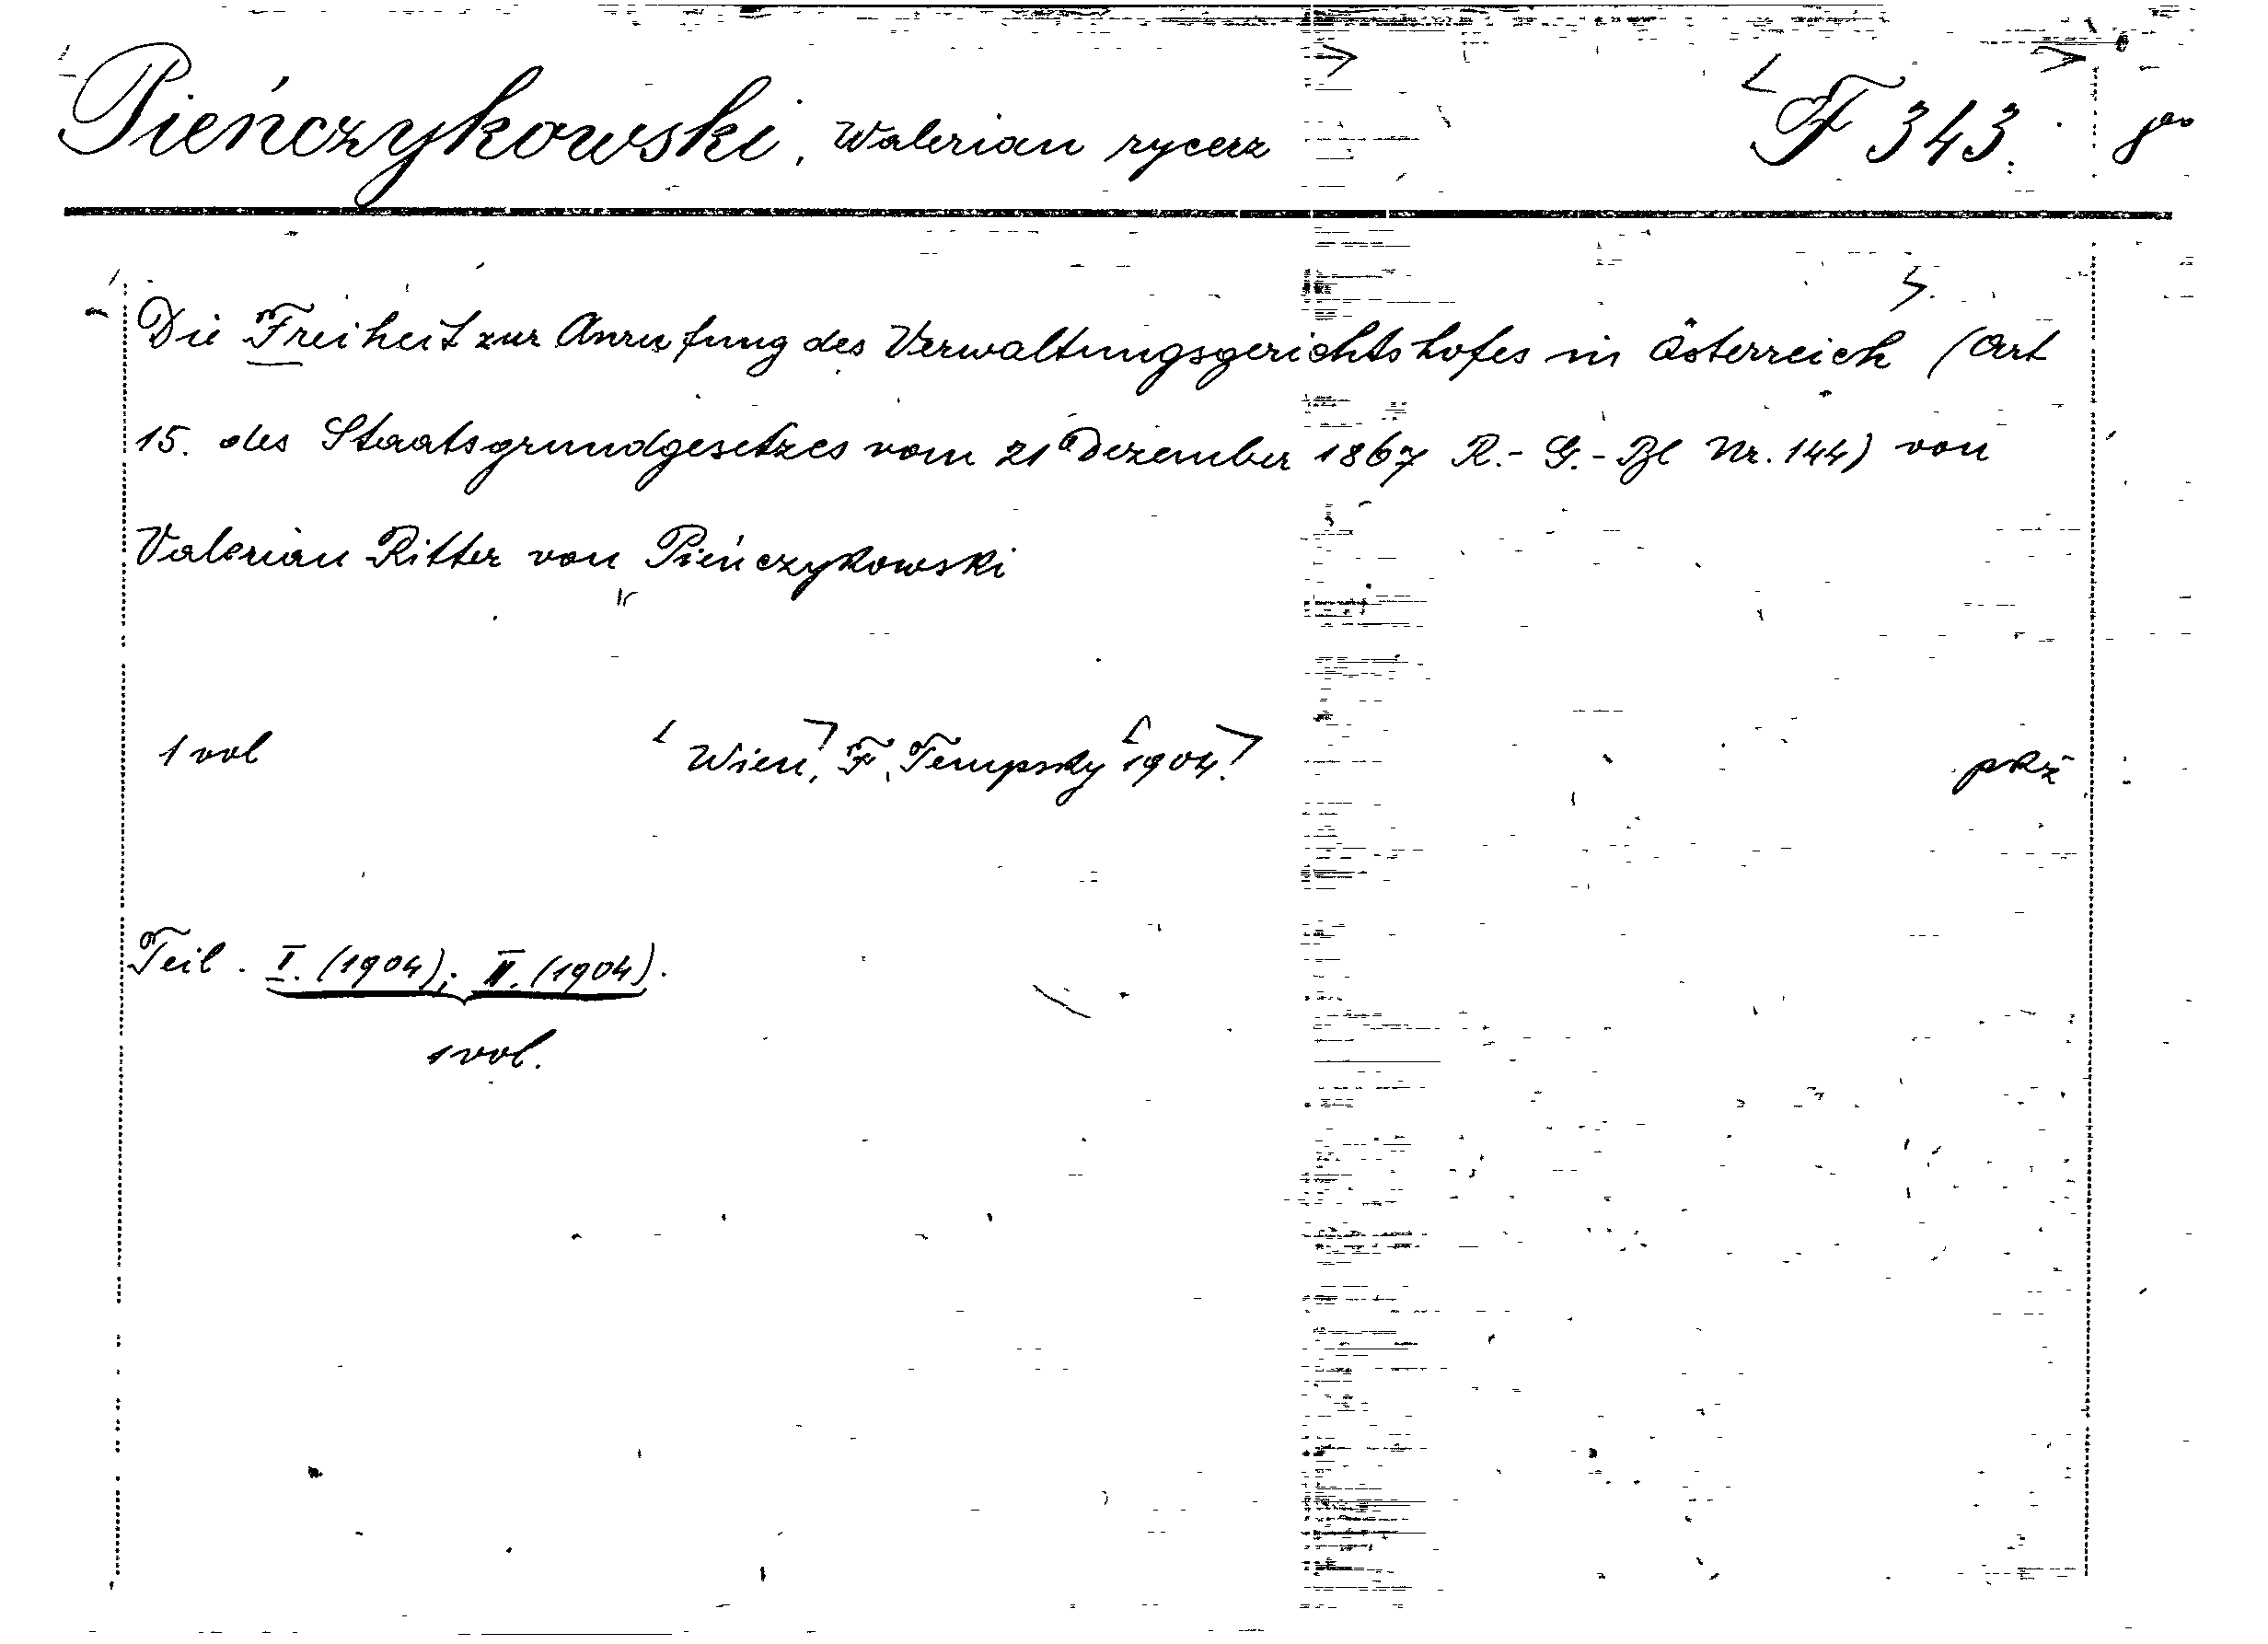 Pieńczykowski, Walerian rycerz F 343. 8ᵛᵒ
Die Freiheit zur Anrufung des Verwaltungsgerichtshofes in Österreich (Art
15. des Staatsgrundgesetzes vom 21 Dezember 1867 R.-G.-Bl Nr. 144) von
Valerian Ritter von Pieńczykowski
1 vol Wien, F. Tempsky 1904. pkż
Teil. I. (1904); II. (1904).
1 vol.